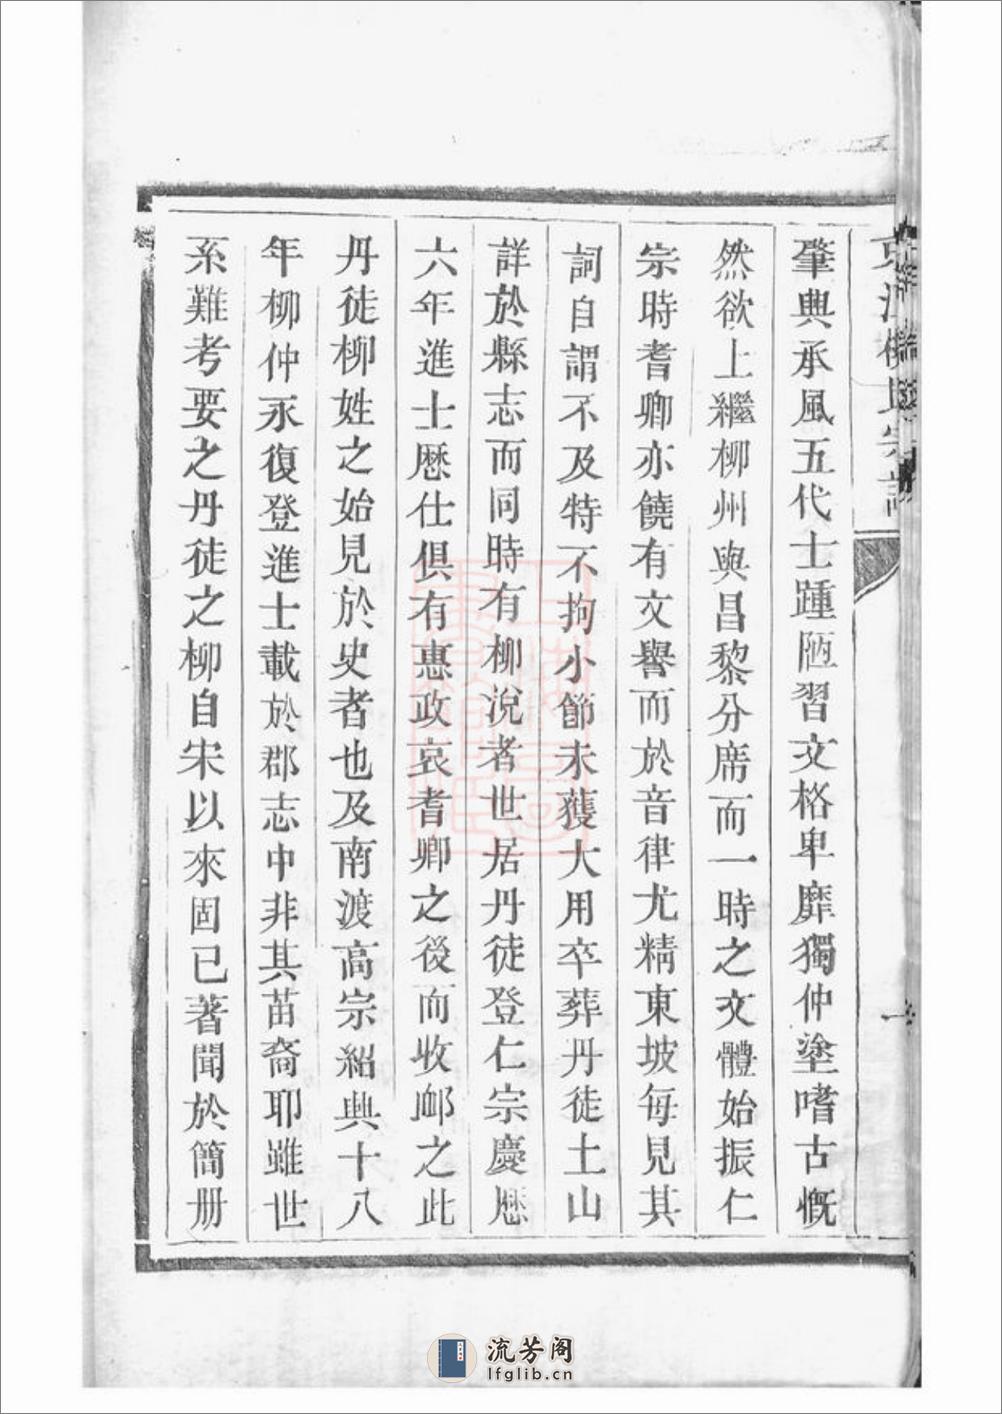 京江柳氏宗譜
肇興承風五代士踵陋習文格卑靡獨仲塗嗜古慨
然欲上繼柳州與昌黎分席而一時之文體始振仁
宗時耆卿亦饒有文譽而於音律尤精東坡每見其
詞自謂不及特不拘小節未獲大用卒葬丹徒土山
詳於縣志而同時有柳涚者世居丹徒登仁宗慶厯
六年進士厯仕俱有惠政哀耆卿之後而收䘏之此
丹徒柳姓之始見於史者也及南渡高宗紹興十八
年柳仲永復登進士載於郡志中非其苗裔耶雖世
系難考要之丹徒之柳自宋以來固已著聞於簡册
流芳阁
lfglib.cn